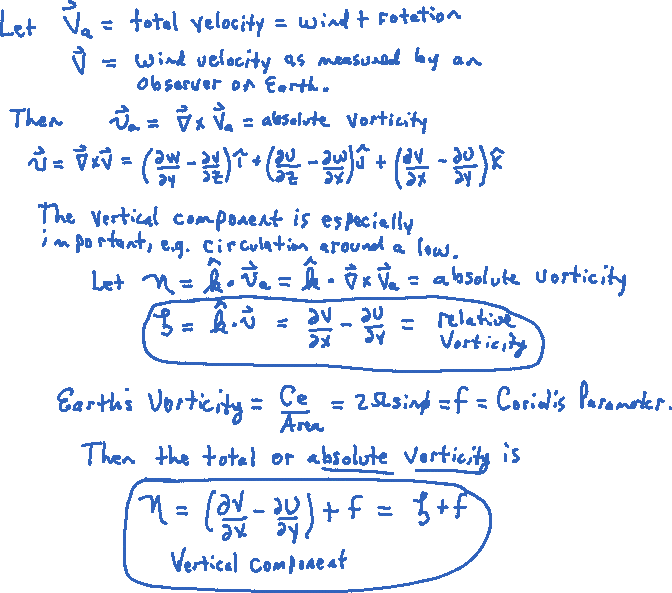 Let V⃗a = total velocity = wind + rotation
V⃗ = wind velocity as measured by an
observer on Earth.
Then υ⃗a = ∇⃗ × V⃗a = absolute vorticity
υ⃗ = ∇⃗ × V⃗ = (∂w/∂y − ∂v/∂z) î + (∂u/∂z − ∂w/∂x) ĵ + (∂v/∂x − ∂u/∂y) k̂
The vertical component is especially
important, e.g. circulation around a low.
Let η = k̂ · υ⃗a = k̂ · ∇⃗ × V⃗a = absolute vorticity
ζ = k̂ · υ⃗ = ∂v/∂x − ∂u/∂y = relative
Vorticity
Earth's Vorticity = Ce/Area = 2Ωsinϕ = f = Coriolis Parameter.
Then the total or absolute vorticity is
η = (∂v/∂x − ∂u/∂y) + f = ζ + f
Vertical component